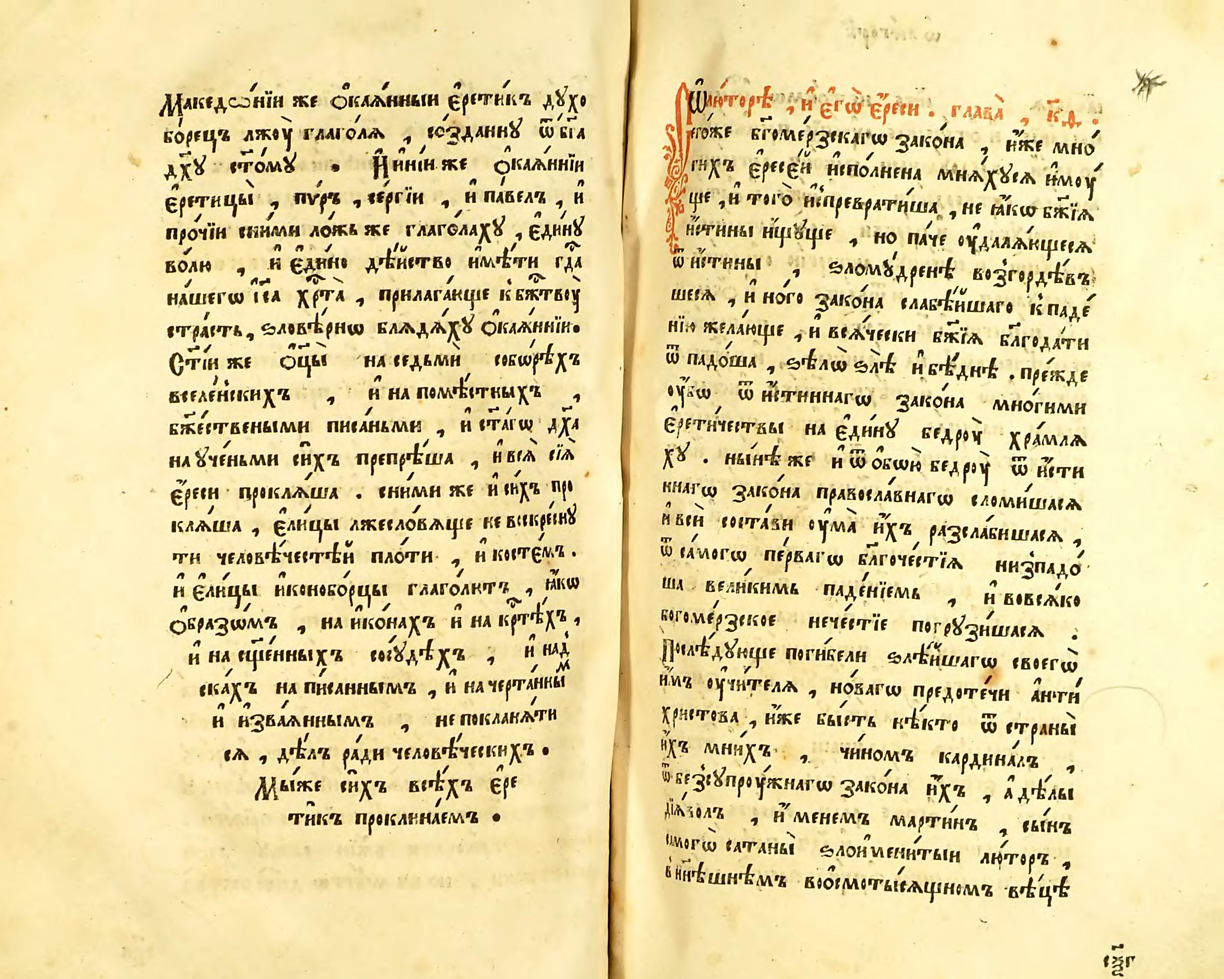 Македѡ́нїи же ѻ҆кая́нныи є҆рети́къ дꙋхо
бо́рецъ лжоу̀ глаго́лѧ , со́зданнꙋ ѿ бг҃а
дх҃ꙋ ст҃о́мꙋ . И҆ні́и же ѻ҆кая́ннїи
є҆рети́цы , пѵ́ръ , се́ргїи , и҆ па́велъ , и҆
про́чїи сни́ми ло́жь же глаго́лахꙋ , є҆ди́нꙋ
во́лю , и҆ є҆ди́но дѣ́йство и҆мѣ́ти гдⷭ҇а
на́шегѡ і҆с҃а хрⷭ҇та̀ , прилага́юще к бжⷭ҇твоу̀
стра́сть , ѕловѣ́рнѡ блѧдѧ́хꙋ ѻ҆кая́ннїи .
Ст҃і́и же ѻ҆ц҃ы̀ на седьми́ собѡ́рѣхъ
вселе́нскихъ , и҆ на помѣ́стныхъ ,
бж҃е́ствеными писа́ньми , и҆ ст҃а́гѡ дх҃а
на ꙋче́ньми си́хъ препрѣ́ша , и҆ всѧ̀ сїѧ̀
є҆́реси проклѧ́ша . сни́ми же и҆ си́хъ про
клѧ́ша , є҆ли́цы лжесло́вѧще не воскре́снꙋ
ти человѣ́честѣй пло́ти , и҆ косте́мъ .
и҆ є҆ли́цы и҆конобо́рцы глаго́лютъ , ꙗ҆́кѡ
ѻ҆́бразѡмъ , на и҆ко́нахъ и҆ на крⷭ҇тѣ́хъ ,
и҆ на сщ҃е́нныхъ сосꙋ́дѣхъ , и҆ на д
ска́хъ на пи́санныⷨмъ , и҆ на черта́нны
и҆ и҆зваѧ́ннымъ , не поклонѧ́ти
сѧ , дѣ́лъ ра́ди человѣ́ческихъ .
Мы́же си́хъ всѣ́хъ є҆ре
ти́къ проклина́емъ .
Ѡ҆ лю́торѣ , и҆ є҆гѡ̀ є҆́реси . глава̀ , к҃д .
І҆его́же бг҃оме́рзскагѡ зако́на , и҆́же мно́
гихъ є҆ресе́й и҆спо́лнена мнѧ́хꙋсѧ и҆моу́
ще , и҆ того̀ и҆спреврати́ша , не ꙗ҆́кѡ бж҃їѧ
и҆́стины и҆́щꙋще , но па́че ѹ҆далѧ́ющесѧ
ѿ и҆́стины , ѕломꙋ́дренѣ возгордѣ́въ
шесѧ , и҆ но́го зако́на слабѣ́йшаго к паде́
нїю жела́юще , и҆ всѧ́чески бж҃їѧ бл҃года́ти
ѿ падо́ша , ѕѣ́лѡ ѕлѣ̀ и҆ бѣ́днѣ . пре́жде
ѹ҆́бѡ ѿ и҆́стиннагѡ зако́на мно́гими
є҆рети́чествы на є҆ди́нꙋ бедроу̀ хра́млѧ
хꙋ . ны́нѣ же и҆ ѿ ѻ҆бо́ю бедроу̀ ѿ и҆́сти
ннагѡ зако́на правосла́внагѡ сломи́шасѧ
и҆ всѝ соста́ви ѹ҆ма̀ и҆́хъ разсла́бишасѧ ,
ѿ са́могѡ пе́рвагѡ бл҃гоче́стїѧ низпадо́
ша вели́кимъ паде́нїемъ , и҆ во всѧ́ко
богоме́рзское нече́стїе погрꙋзи́шасѧ .
Послѣ́дꙋюще поги́бели ѕлѣ́йшагѡ своегѡ̀
и҆́мъ ѹ҆чи́телѧ , но́вагѡ предоте́чи а҆нти
христо́ва , и҆́же бы́сть нѣ́кто ѿ страны̀
и҆́хъ мни́хъ , чи́номъ кардина́лъ ,
ѿ безсꙋпроу́жнагѡ зако́на и҆́хъ , а҆ дѣ́лы
дїѧ́волъ , и҆́менемъ марти́нъ , сы́нъ
самогѡ̀ сатаны̀ ѕлоимени́тыи лю́торъ ,
в нн҃ѣшнѣмъ воо́смотысѧщномъ вѣ́цѣ